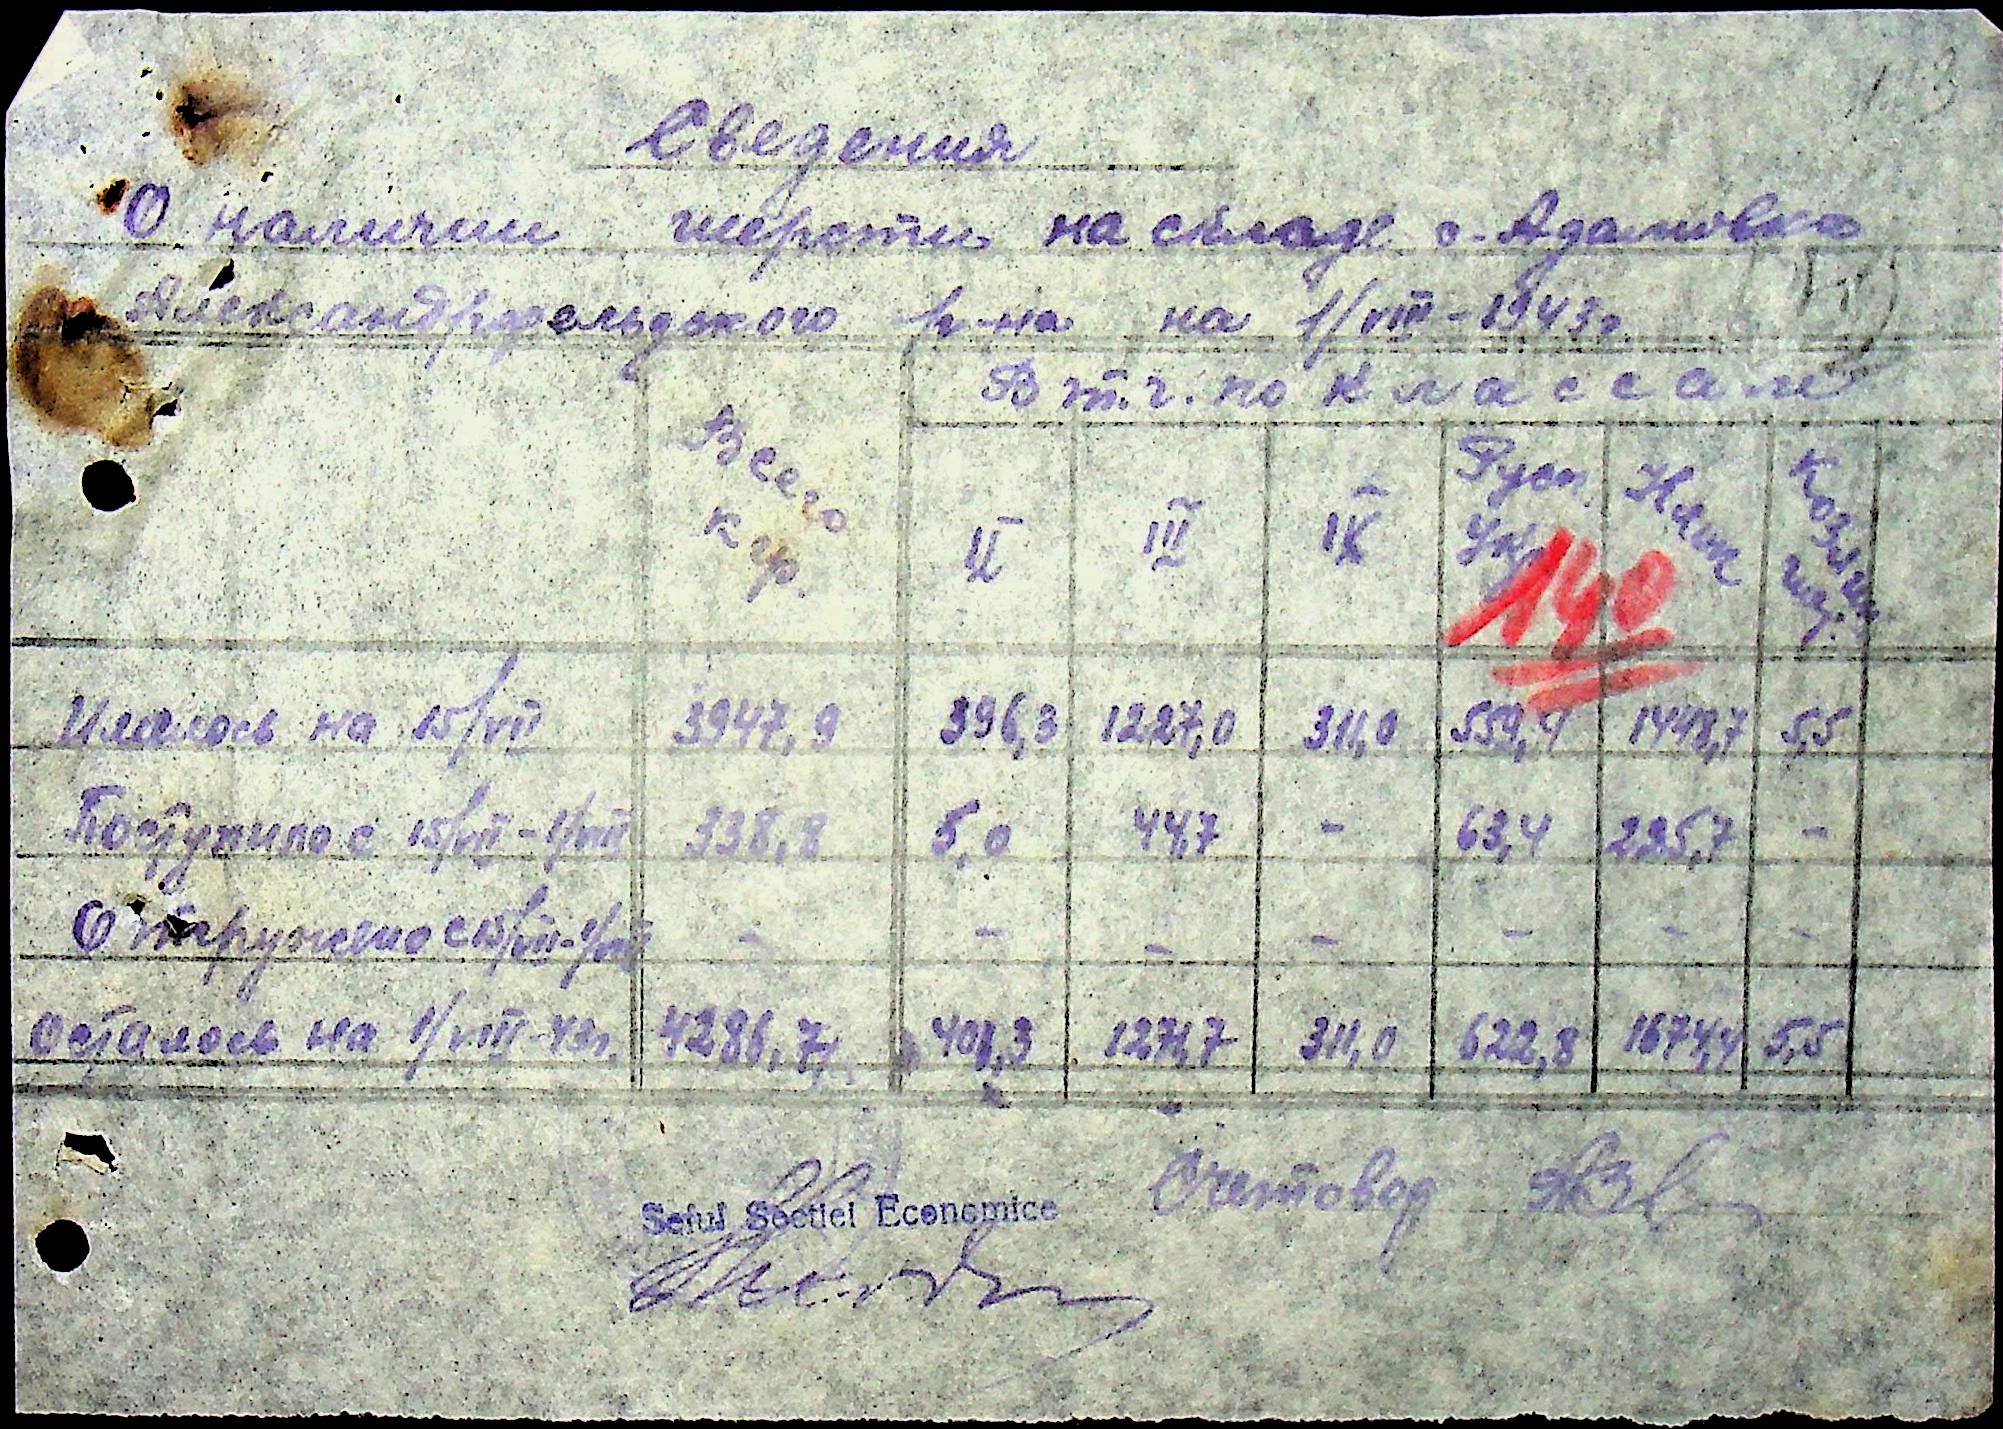 13
Сведения
О наличии шерсти на складе с. Адамовка
Александрфельдского р-на на 1/VIII-1943г.
Всего кгр. В т.ч. по классам
II III IX Руск. Укр. Клип Козьи
140
Имелось на 15/VII 3947,9 396,3 1227,0 311,0 559,4 1448,7 5,5
Поступило с 15/VII-1/VIII 338,8 5,0 44,7 - 63,4 225,7 -
Отгружено с 15/VII-1/VIII - - - - - - -
Осталось на 1/VIII-43г. 4286,7 401,3 1271,7 311,0 622,8 1674,4 5,5
Seful Sectiei Economice Счетовод